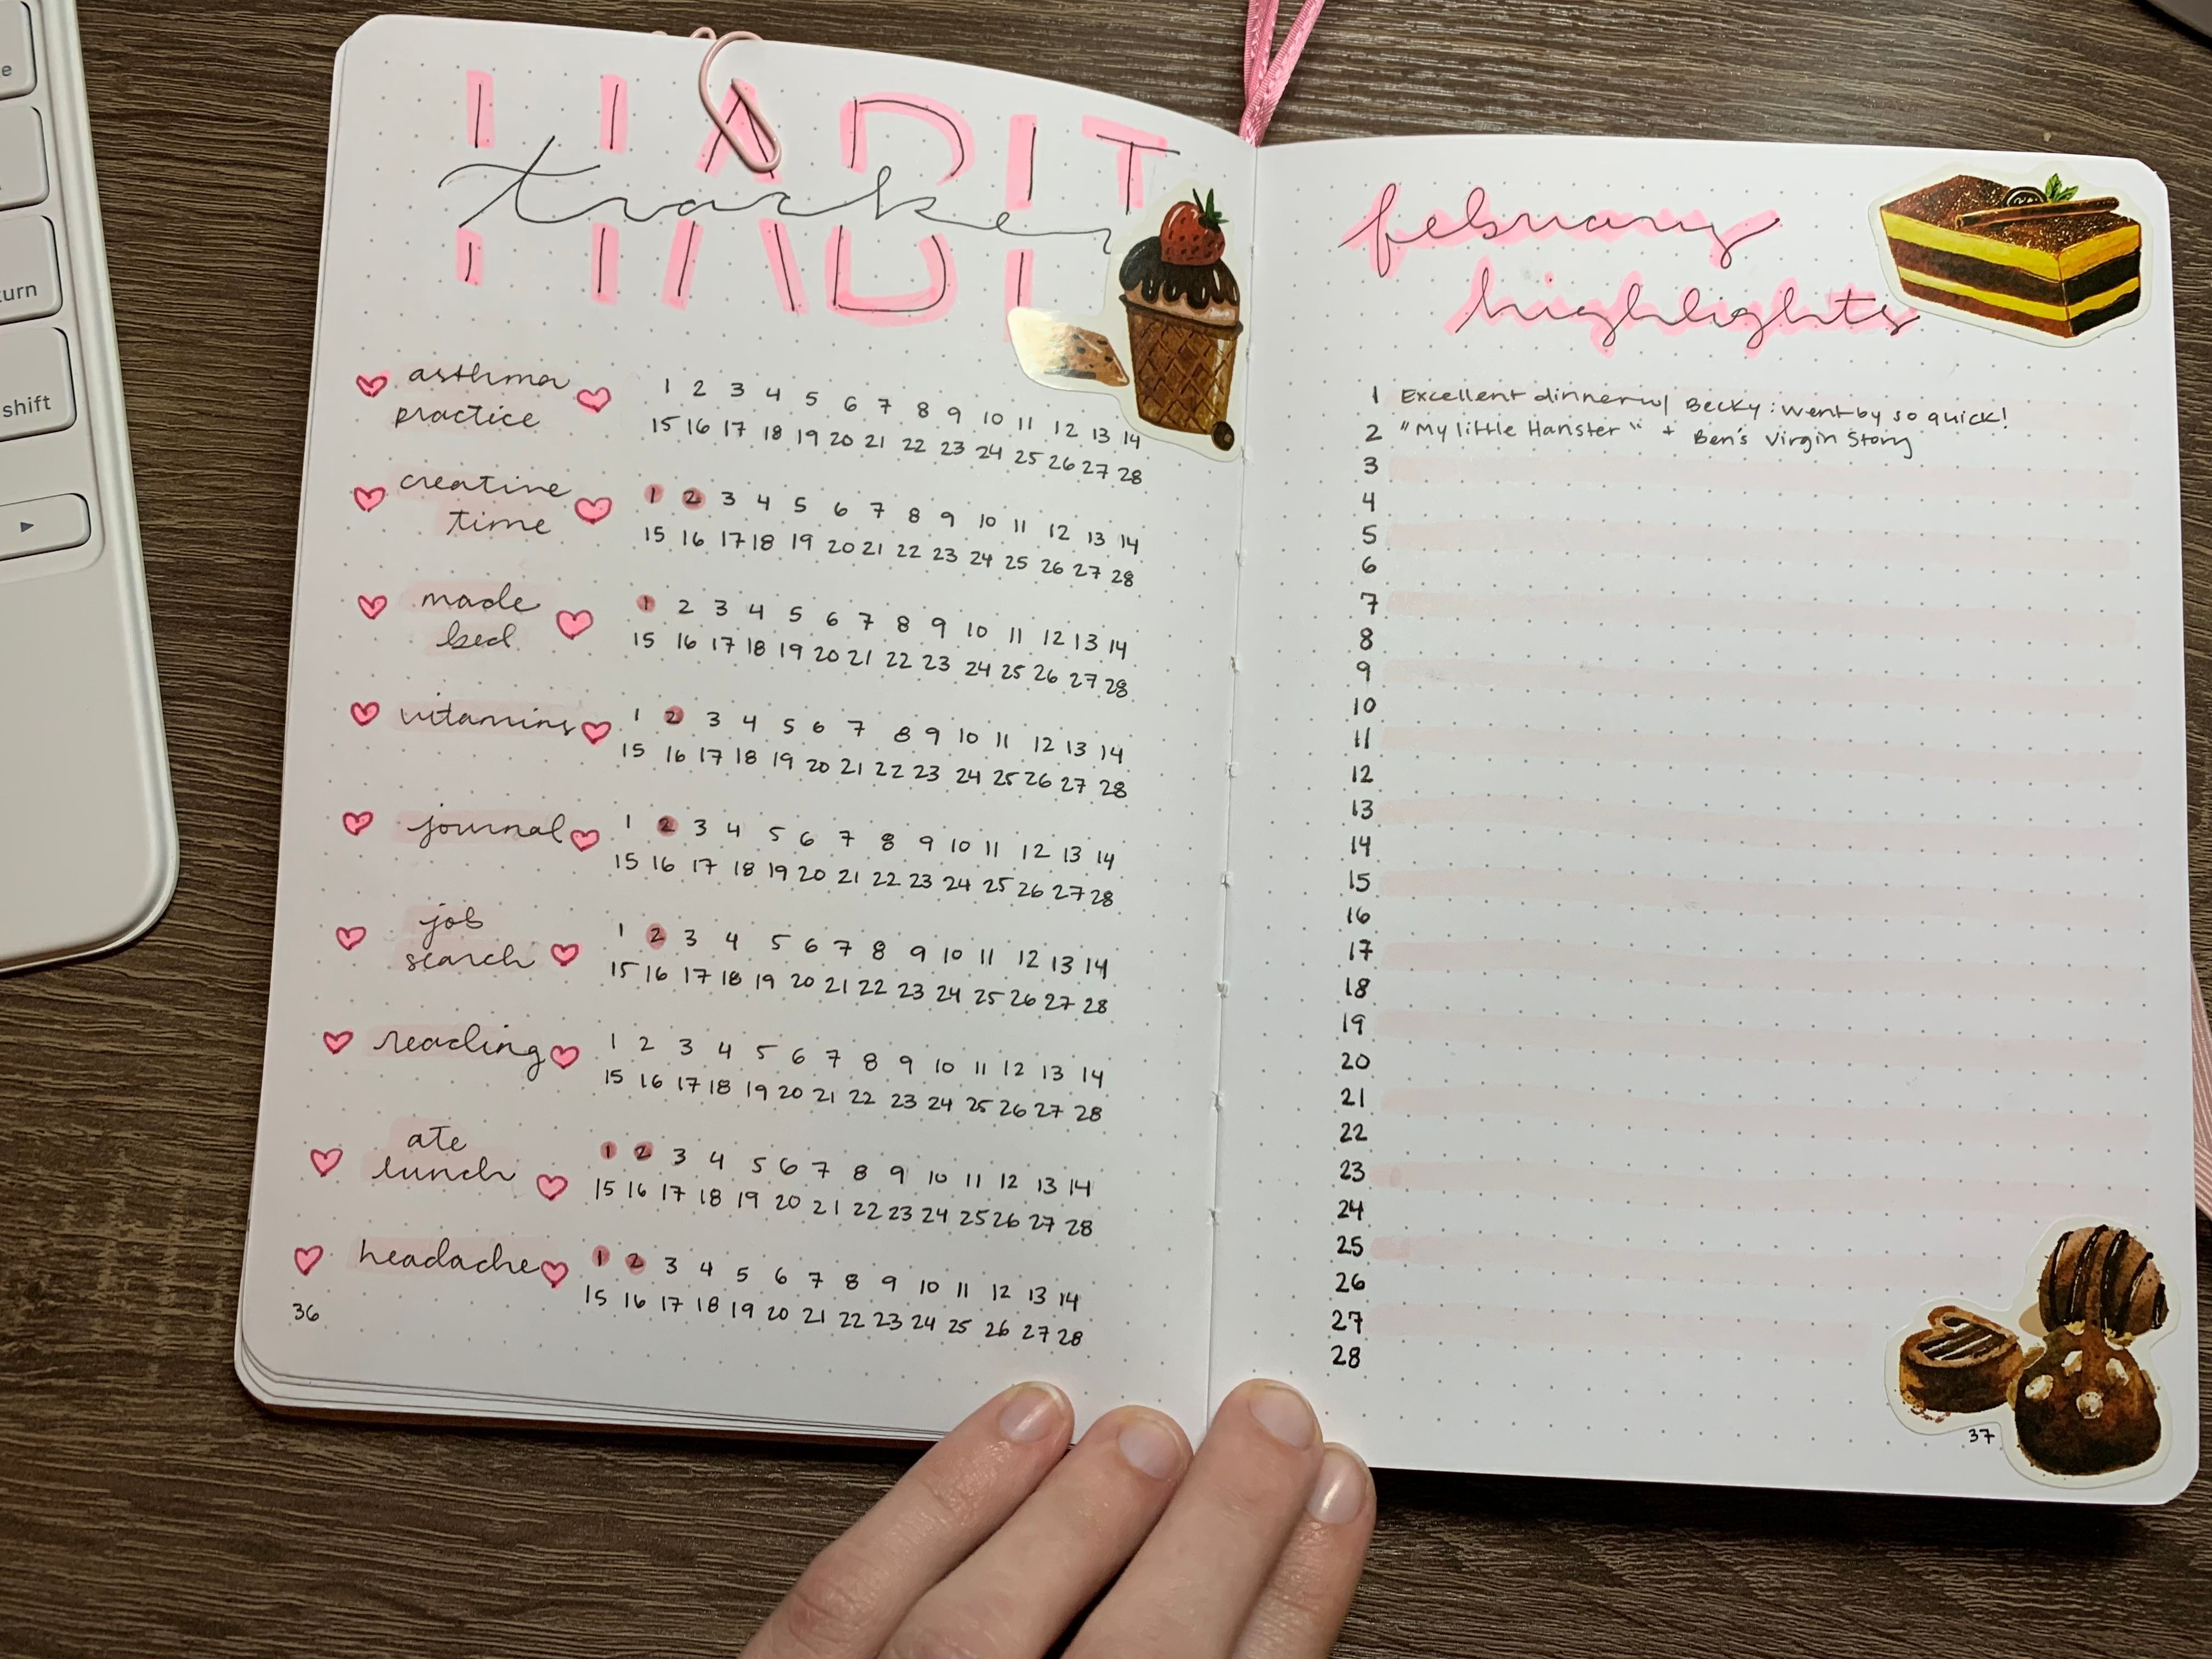 HABIT
tracker
asthma
practice
1 2 3 4 5 6 7 8 9 10 11 12 13 14
15 16 17 18 19 20 21 22 23 24 25 26 27 28
creative
time
1 2 3 4 5 6 7 8 9 10 11 12 13 14
15 16 17 18 19 20 21 22 23 24 25 26 27 28
made
bed
1 2 3 4 5 6 7 8 9 10 11 12 13 14
15 16 17 18 19 20 21 22 23 24 25 26 27 28
vitamins
1 2 3 4 5 6 7 8 9 10 11 12 13 14
15 16 17 18 19 20 21 22 23 24 25 26 27 28
journal
1 2 3 4 5 6 7 8 9 10 11 12 13 14
15 16 17 18 19 20 21 22 23 24 25 26 27 28
job
search
1 2 3 4 5 6 7 8 9 10 11 12 13 14
15 16 17 18 19 20 21 22 23 24 25 26 27 28
reading
1 2 3 4 5 6 7 8 9 10 11 12 13 14
15 16 17 18 19 20 21 22 23 24 25 26 27 28
ate
lunch
1 2 3 4 5 6 7 8 9 10 11 12 13 14
15 16 17 18 19 20 21 22 23 24 25 26 27 28
headache
1 2 3 4 5 6 7 8 9 10 11 12 13 14
15 16 17 18 19 20 21 22 23 24 25 26 27 28
36
february
highlights
1 Excellent dinner w/ Becky: went by so quick!
2 "My little Hamster" + Ben's Virgin Story
3
4
5
6
7
8
9
10
11
12
13
14
15
16
17
18
19
20
21
22
23
24
25
26
27
28
37
shift